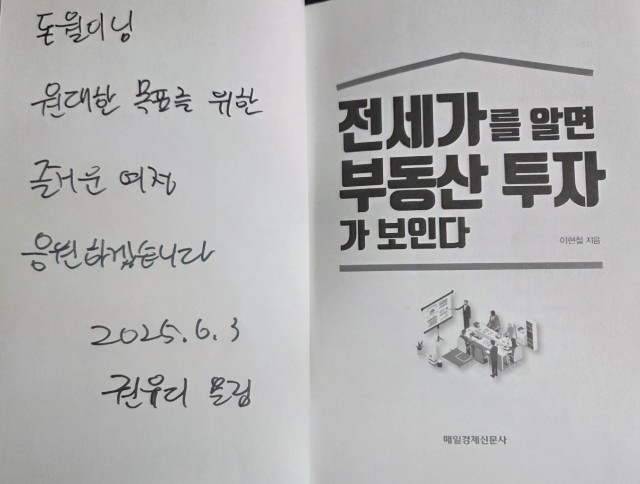 돈월디님
원대한 목표를 위한
즐거운 여정
응원하겠습니다
2025.6.3
권유디 드림
전세가를 알면
부동산 투자
가 보인다
이현철 지음
매일경제신문사